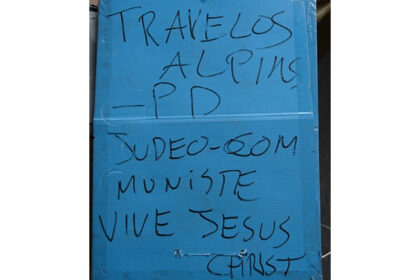 TRAVELOS
ALPINS
-PD
JUDEO-COM
MUNISTE
VIVE JESUS
CHRIST